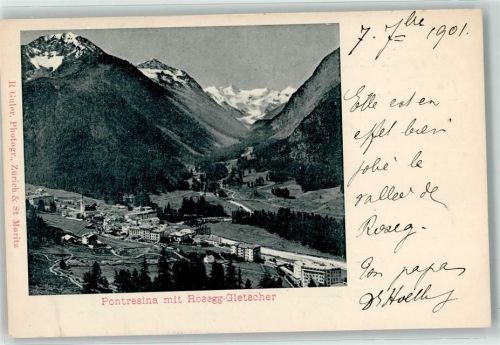 R Guler, Photogr., Zürich & St. Moritz
Pontresina mit Rosegg-Gletscher
7. 7bre 1901.
Elle est en
effet bien
jolie la
vallée de
Roseg.
Ton papa